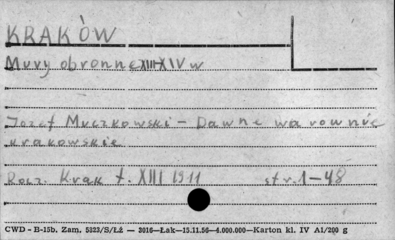 KRAKÓW
Mury obronne XIII-XIV w
Józef Muczkowski - Dawne warownie
krakowskie
Rocz. Krak t. XIII 1911 str. 1-48
CWD - B-15b. Zam. 5323/S/Łż — 3016—Łak—15.11.56—4.000.000—Karton kl. IV A1/200 g